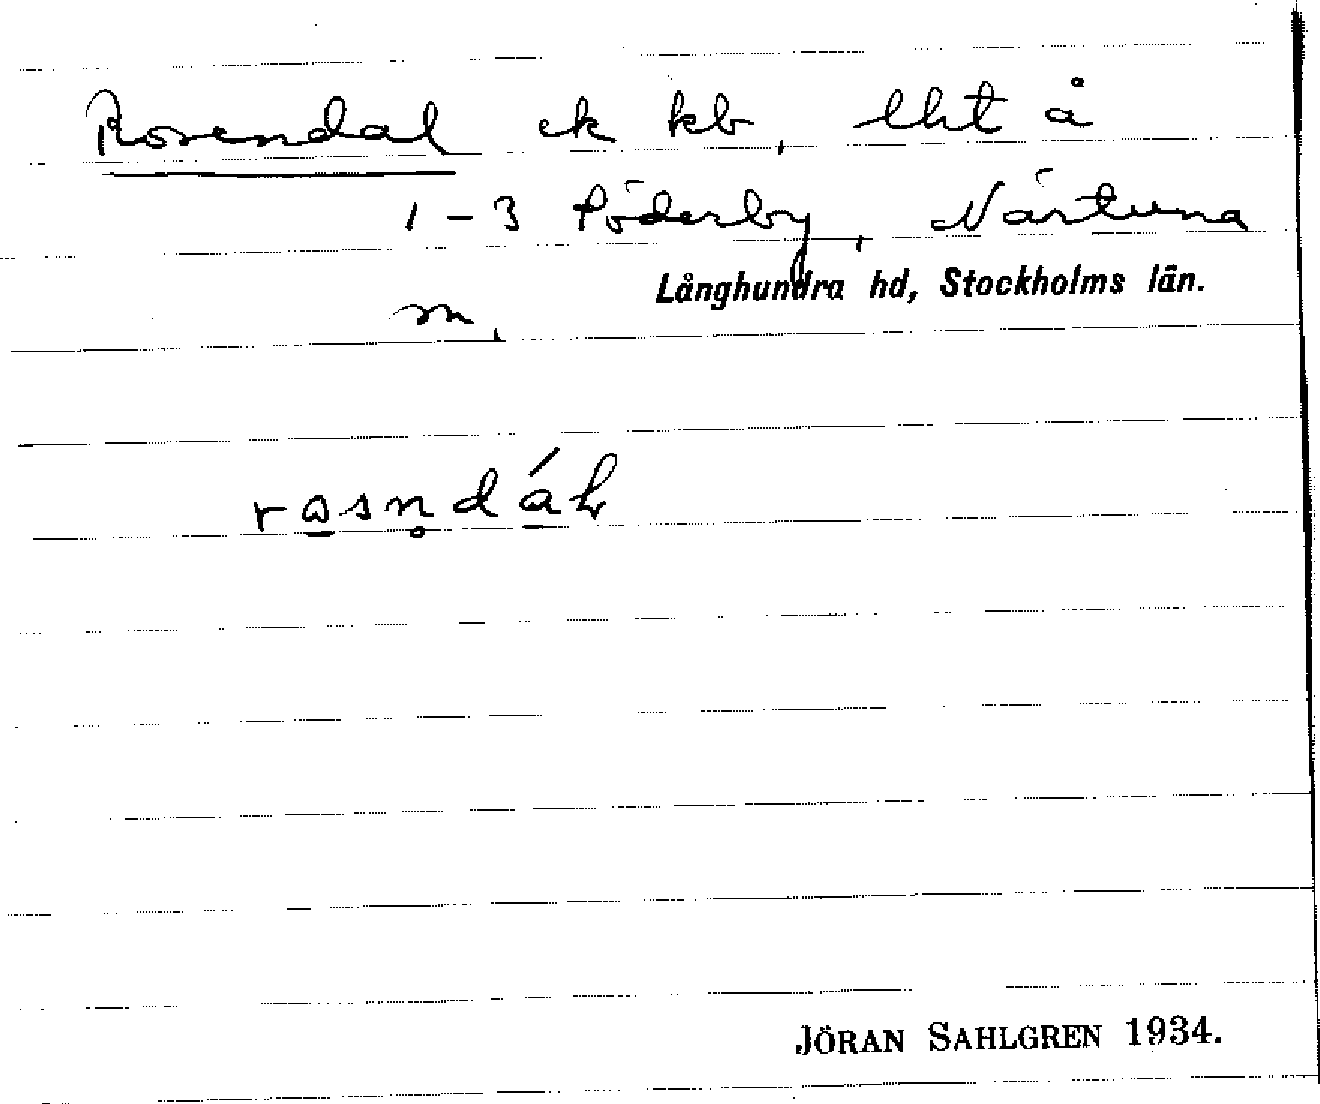 Rosendal ek kb, lht å
1–3 Söderby, Närtuna
Långhundra hd, Stockholms län.
sn,
JÖRAN SAHLGREN 1934.